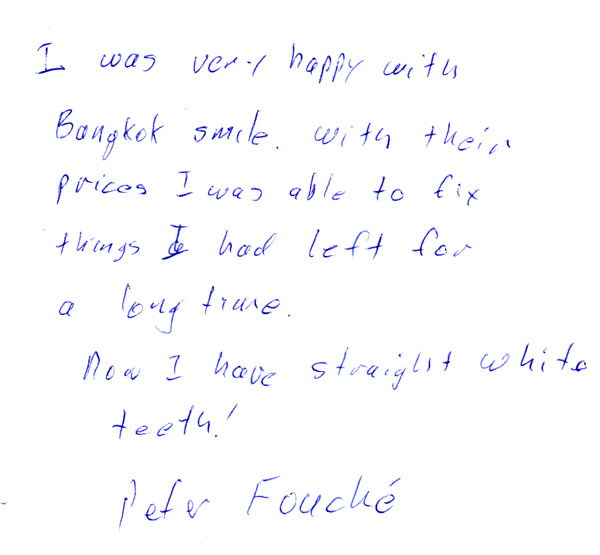 I was very happy with
Bangkok smile. with their
prices I was able to fix
things I had left for
a long time.
Now I have straight white
teeth!
Peter Fouché